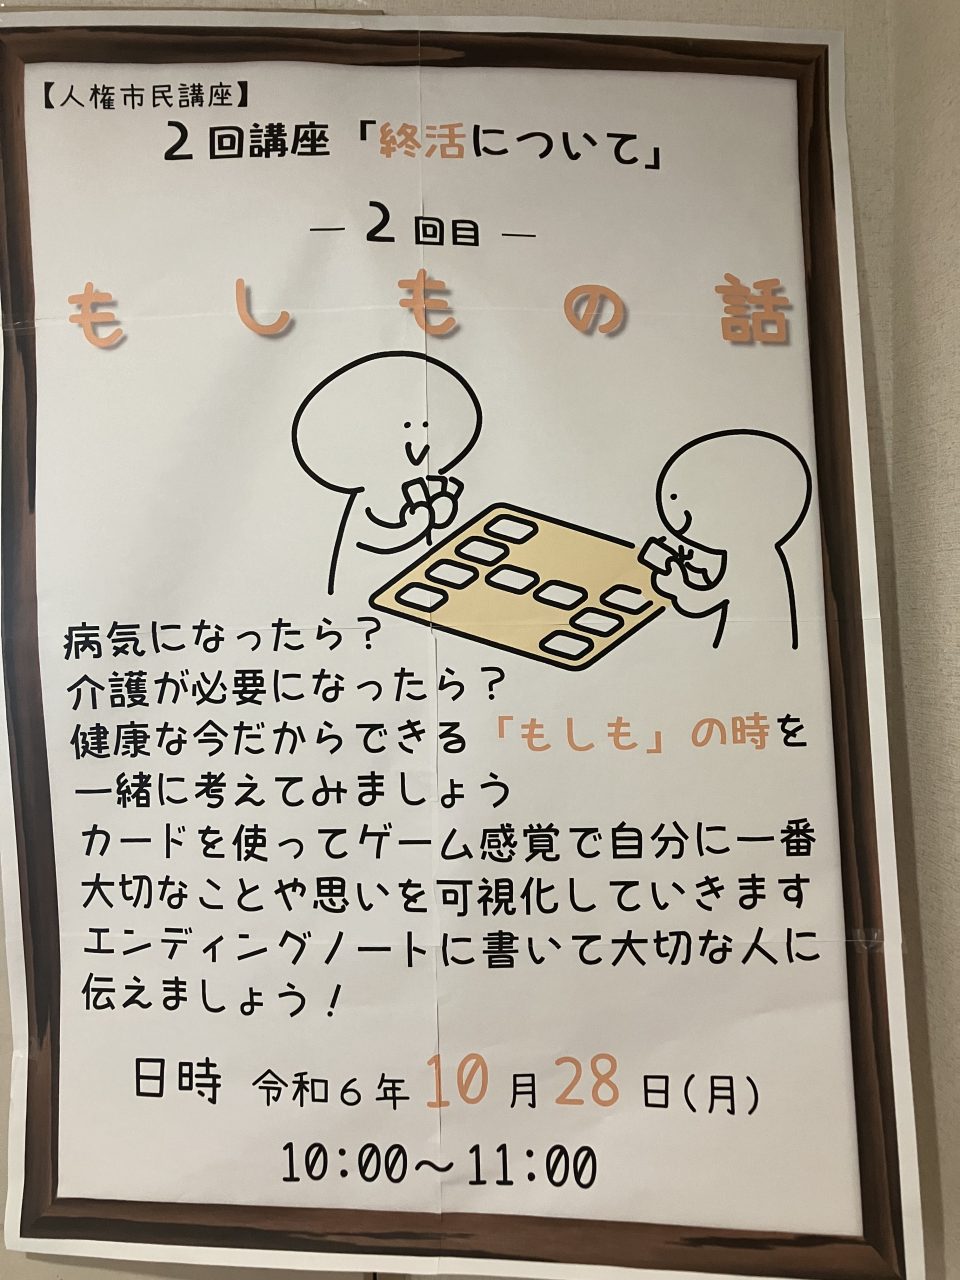 【人権市民講座】
2回講座「終活について」
― 2回目 ―
もしもの話
病気になったら?
介護が必要になったら?
健康な今だからできる「もしも」の時を
一緒に考えてみましょう
カードを使ってゲーム感覚で自分に一番
大切なことや思いを可視化していきます
エンディングノートに書いて大切な人に
伝えましょう!
日時 令和6年10月28日(月)
10:00~11:00